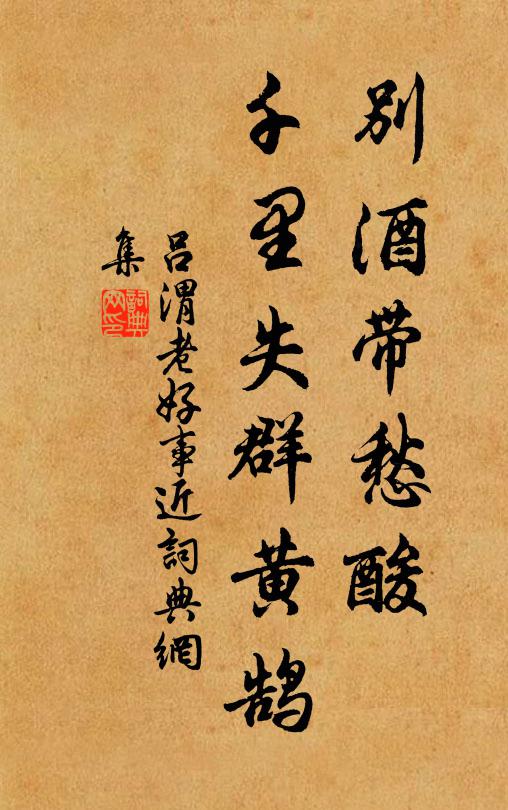 別酒带愁酸
千里失群黄鹄
吕渭老好事近詞典網
集
詞典
网印